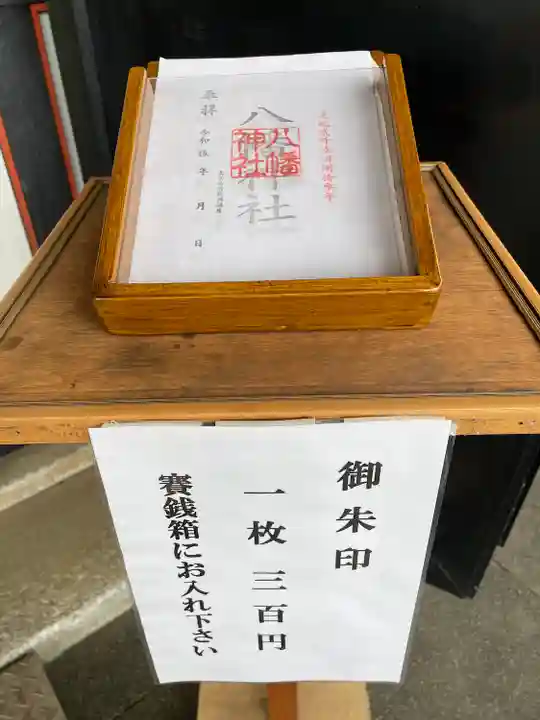 八幡神社
八幡
神社
奉拝
令和伍年 月 日
御朱印
一枚 三百円
賽銭箱にお入れ下さい